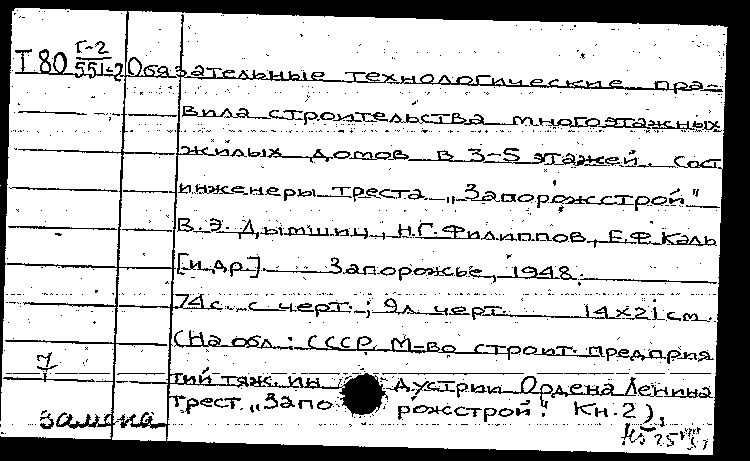 Г-2
Т80 551-2 Обязательные технологические пра-
вила строительства многоэтажных
жилых домов в 3-5 этажей. Сост.
инженеры треста „Запорожстрой"
В.Э. Дымшиц, Н.Г. Филиппов, Е.Ф. Каль
[и др.]. Запорожье, 1948.
74 с. с черт.; 9 л. черт. 14х21 см.
(На обл.: СССР. М-во строит. предприя
тий тяж. ин дустрии Ордена Ленина
трест „Запо рожстрой". Кн. 2),
7
замена